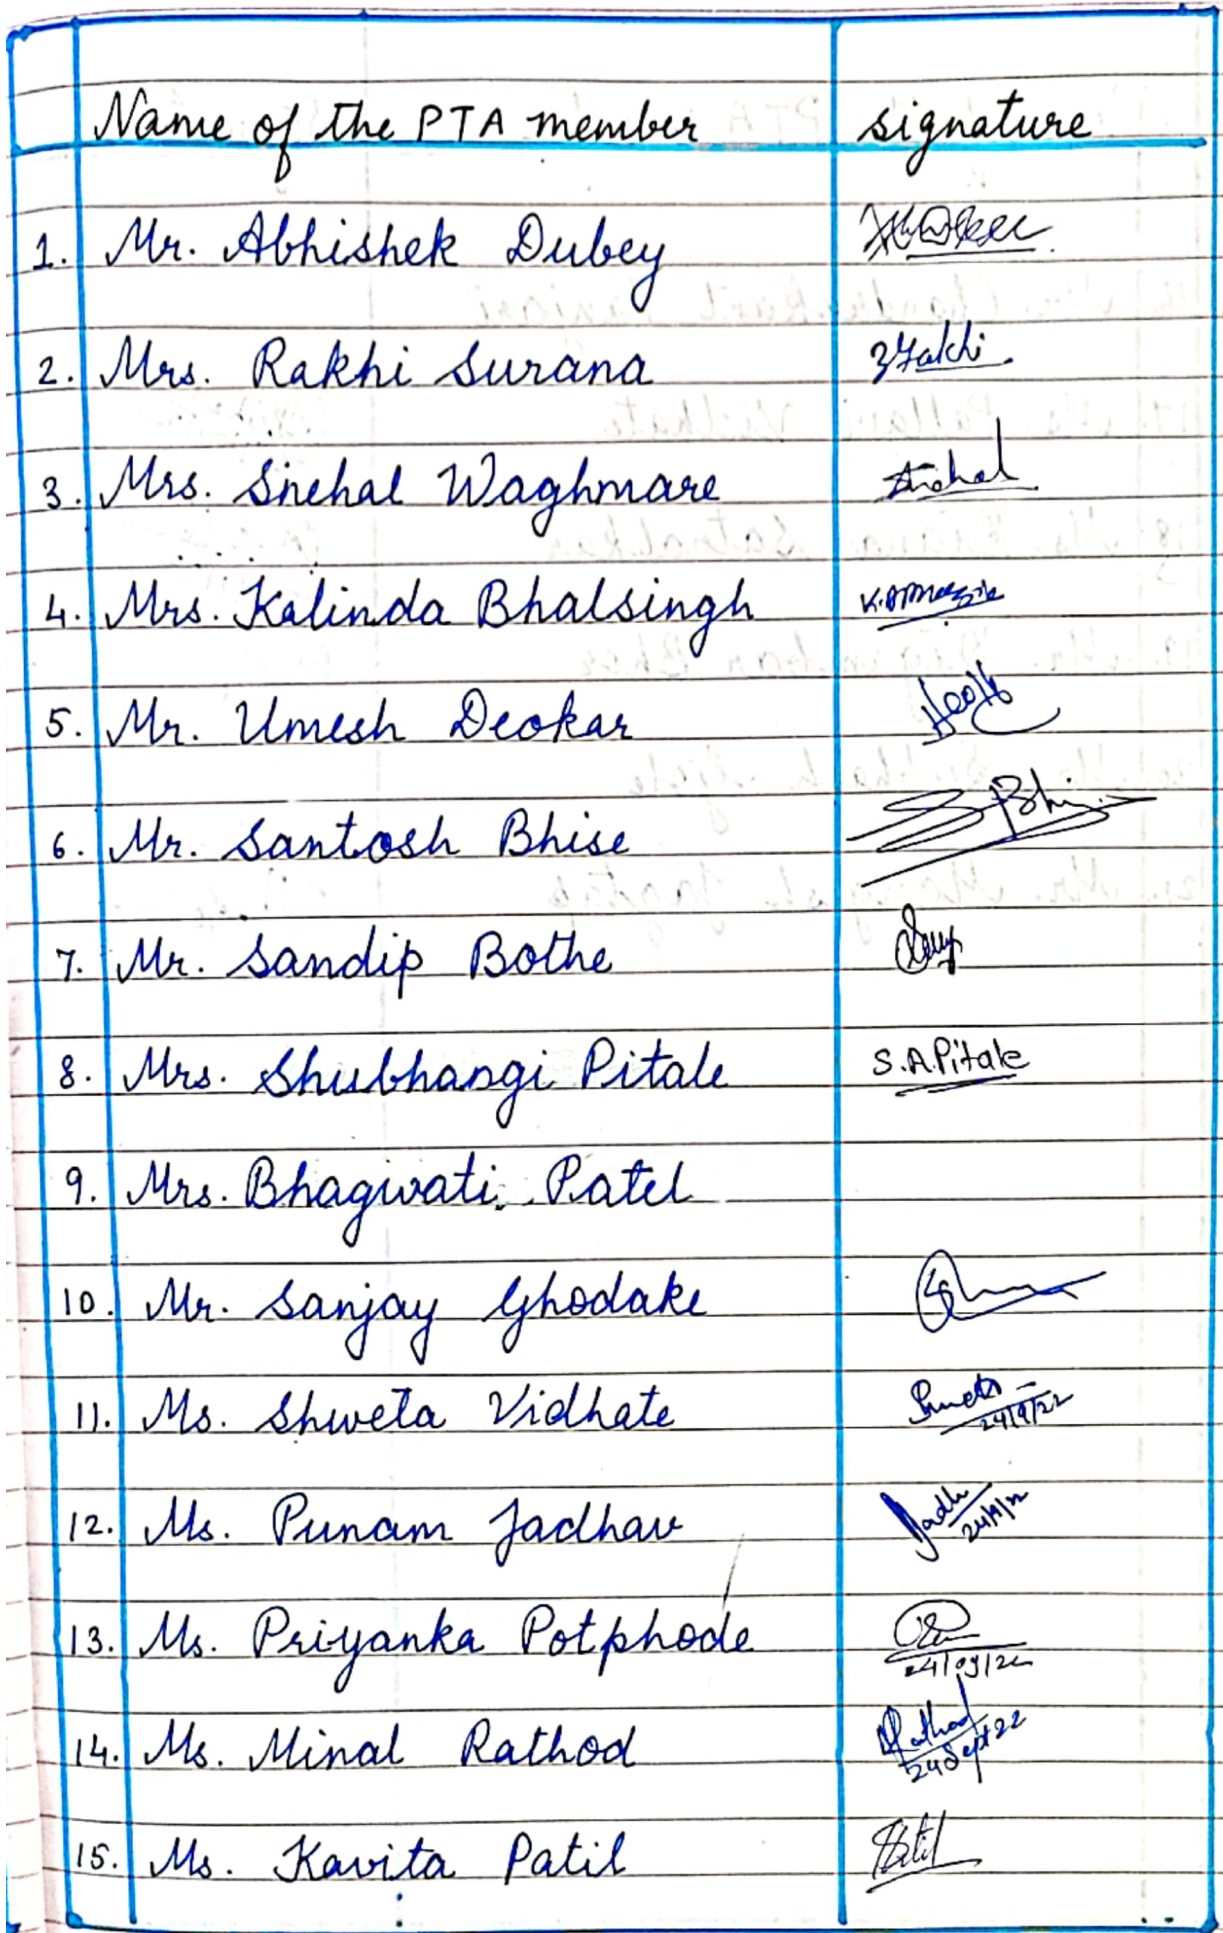 Name of the PTA member signature
1. Mr. Abhishek Dubey
2. Mrs. Rakhi Surana Rakhi
3. Mrs. Snehal Waghmare Snehal
4. Mrs. Kalinda Bhalsingh
5. Mr. Umesh Deokar
6. Mr. Santosh Bhise
7. Mr. Sandip Bothe
8. Mrs. Shubhangi Pitale S.A.Pitale
9. Mrs. Bhagwati Patel
10. Mr. Sanjay Ghodake
11. Ms. Shweta Vidhate
24/9/22
12. Ms. Punam Jadhav
24/9/22
13. Ms. Priyanka Potphode
24/09/22
14. Ms. Minal Rathod Rathod
24 Sept 22
15. Ms. Kavita Patil